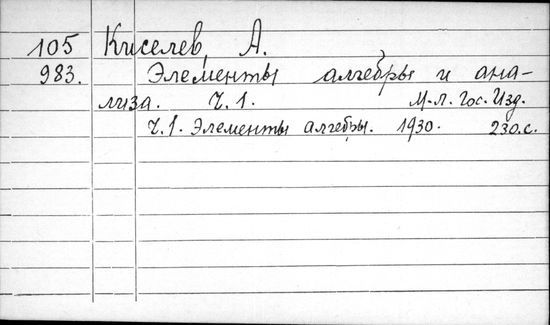 105 Киселев, А.
983. Элементы алгебры и ана-
лиза. Ч. 1. М-Л. Гос. Изд.
Ч. 1. Элементы алгебры. 1930. 230.с.